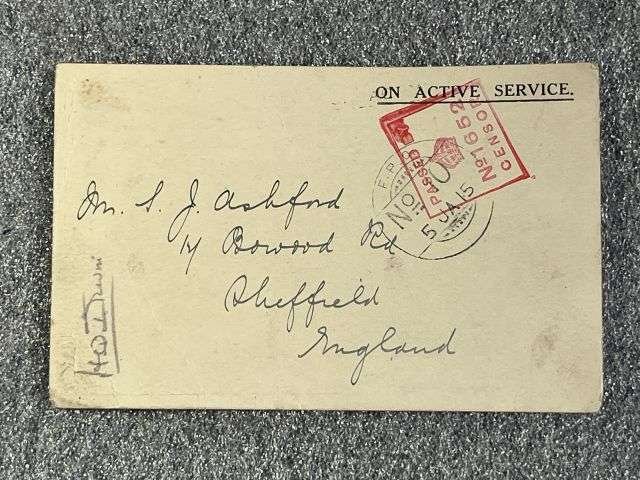 ON ACTIVE SERVICE.
PASSED BY
No 1652
CENSOR
5 JA 15
Mr. S. J. Ashford
14 Bowood Rd
Sheffield
England